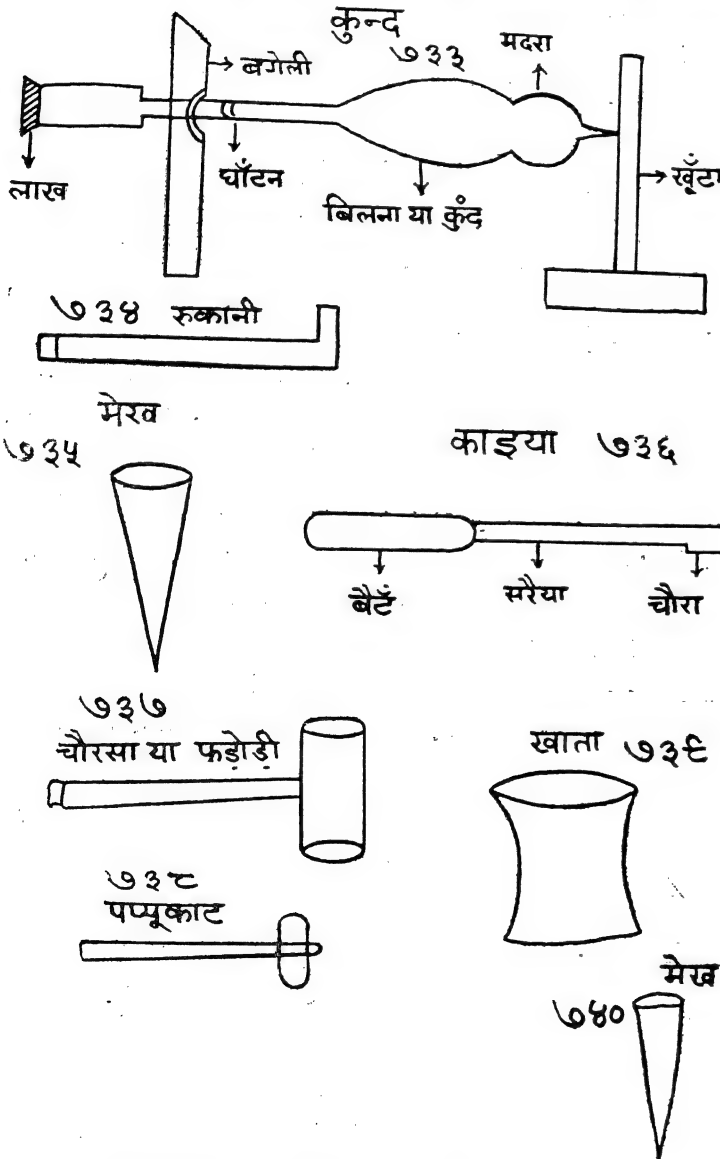 कुन्द
७३३
मदरा
बगेली
लाख
घाँटन
बिलना या कुंद
खूँटा
७३४ रुकानी
मेख
७३५
काइया ७३६
बैटँ
सरैया
चौरा
७३७
चौरसा या फड़ोड़ी
खाता ७३९
७३८
पप्पूकाट
मेख
७४०